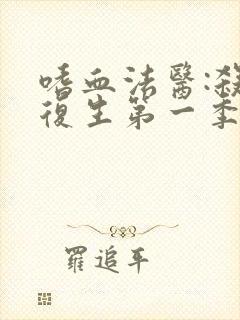 嗜血法醫:殺
復生第一季
羅追平